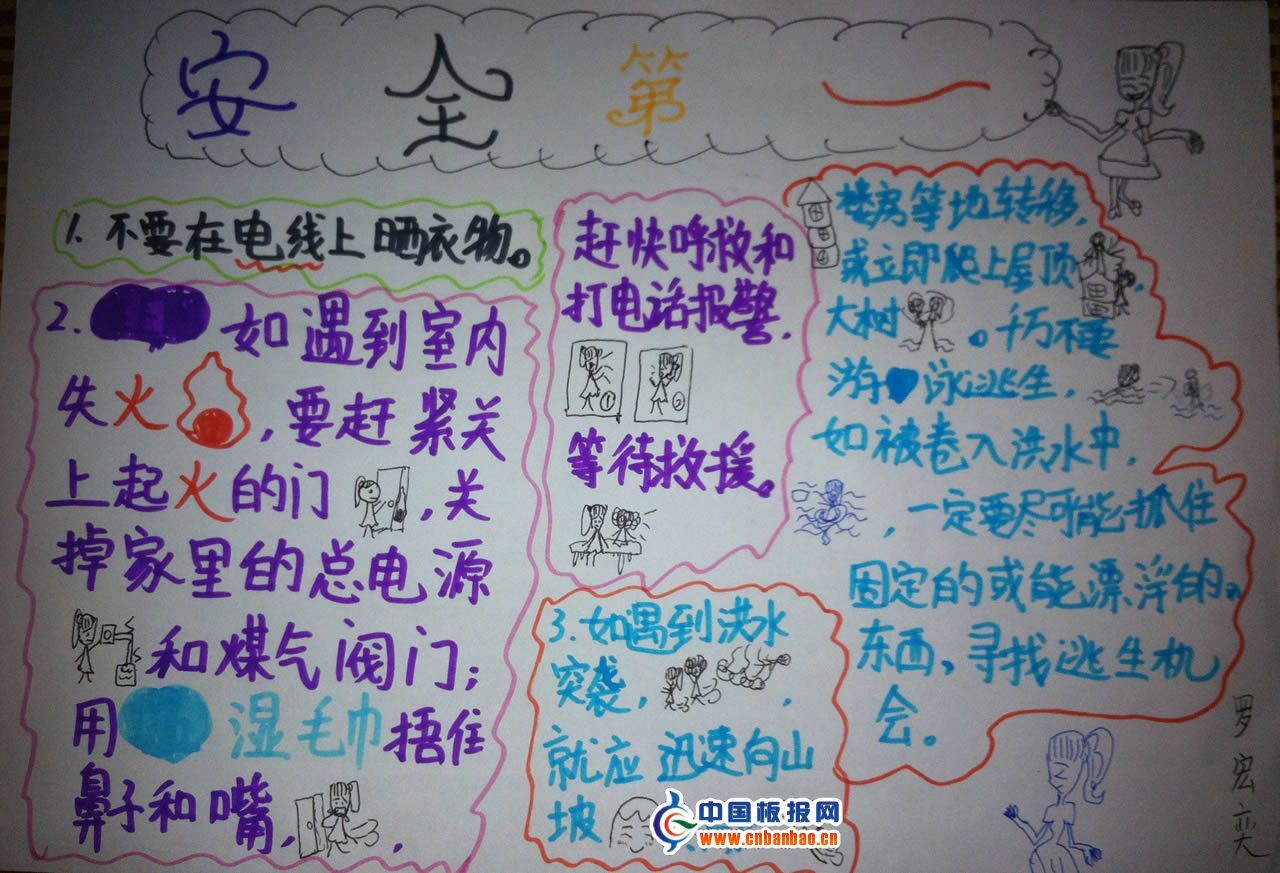 安全第一
1.不要在电线上晒衣物。
2.如遇到室内
失火,要赶紧关
上起火的门,关
掉家里的总电源
和煤气阀门;
用湿毛巾捂住
鼻子和嘴,,
赶快呼救和
打电话报警,
①②
等待救援。
3.如遇到洪水
突袭,,
就应迅速向山
坡
楼房等地转移,
或立即爬上屋顶,
大树。千万不要
游泳逃生,
如被卷入洪水中,
,一定要尽可能抓住
固定的或能漂浮的
东西,寻找逃生机
会。
罗宏奕
中国板报网
www.cnbanbao.cn